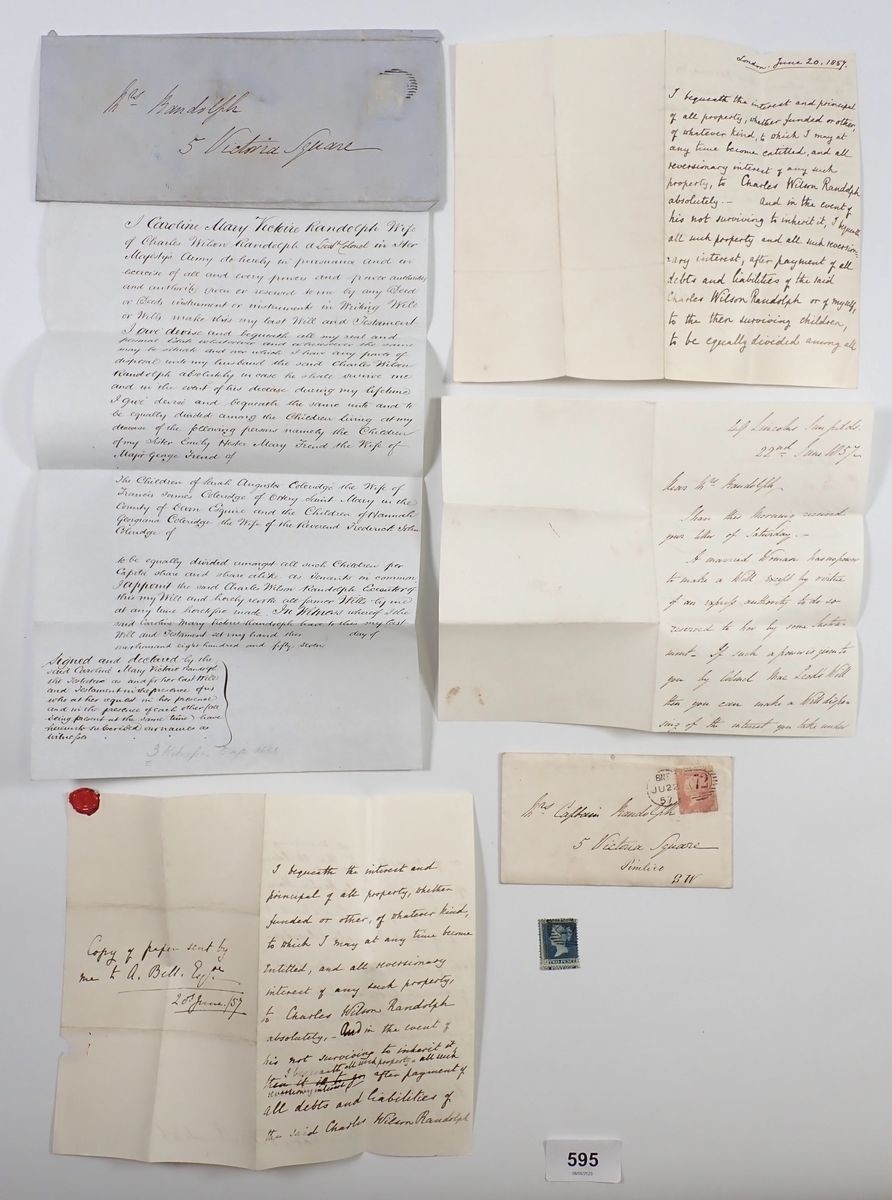 Mrs Randolph
5 Victoria Square
I Caroline Mary Victoire Randolph Wife
of Charles Wilson Randolph a Lieut. Colonel in Her
Majesty's Army do hereby in pursuance and in
exercise of all and every powers and power authorities
and authority given or reserved to me by any Deed
or Deeds instrument or instruments in Writing Will
or Wills make this my last Will and Testament
I give devise and bequeath all my real and
personal Estate whatsoever and wheresoever the same
may be situate and over which I have any power of
disposal unto my husband the said Charles Wilson
Randolph absolutely in case he shall survive me
and in the event of his decease during my lifetime
I give devise and bequeath the same unto and to
be equally divided among the Children living at my
decease of the following persons namely the Children
of my Sister Emily Hester Mary Trend the Wife of
Major George Trend of
The Children of Sarah Augusta Coleridge the Wife of
Francis James Coleridge of Ottery Saint Mary in the
County of Devon Esquire and the Children of Hannah
Georgiana Coleridge the Wife of the Reverend Frederick John
of
to be equally divided amongst all such Children per
Capita share and share alike as tenants in common
I appoint the said Charles Wilson Randolph Executor of
this my Will and hereby revoke all former Wills by me
at any time heretofore made. In Witness whereof I the
said Caroline Mary Victoire Randolph have to this my last
Will and Testament set my hand this day of
one thousand eight hundred and fifty seven
Signed and declared by the
said Caroline Mary Victoire Randolph
the Testatrix as and for her last Will
and Testament in the presence of us
who at her request in her presence
and in the presence of each other (all
being present at the same time) have
hereunto subscribed our names as
witnesses
London. June 20. 1857.
I bequeath the interest and principal
of all property, whether funded or other,
of whatever kind, to which I may at
any time become entitled, and all
reversionary interest of any such
property, to Charles Wilson Randolph
absolutely. — And in the event of
his not surviving to inherit it, I bequeath
all such property and all such reversion-
ary interest, after payment of all
debts and liabilities of the said
Charles Wilson Randolph or of myself,
to the then surviving children,
to be equally divided among all
49 Lincolns Inn fields
22nd June 1857
Dear Mrs Randolph
I have this Morning received
your letter of Saturday. —
A married Woman has no power
to make a Will except by virtue
of an express authority to do so
reserved to her by some Instru-
ment — If such a power is given to
you by Colonel Mac Leod's Will
then you can make a Will dispo-
sing of the interest you take under
JU 22
57
Mrs Captain Randolph
5 Victoria Square
Pimlico
S.W
Copy of paper sent by
me to A. Bell. Esqre
20th June. /57
I bequeath the interest and
principal of all property, whether
funded or other, of whatever kind,
to which I may at any time become
entitled, and all reversionary
interest of any such property,
to Charles Wilson Randolph
absolutely, — And in the event of
his not surviving to inherit it
I bequeath all such property & all such
reversionary interest after payment of
all debts and liabilities of
the said Charles Wilson Randolph
POSTAGE
TWO PENCE
595